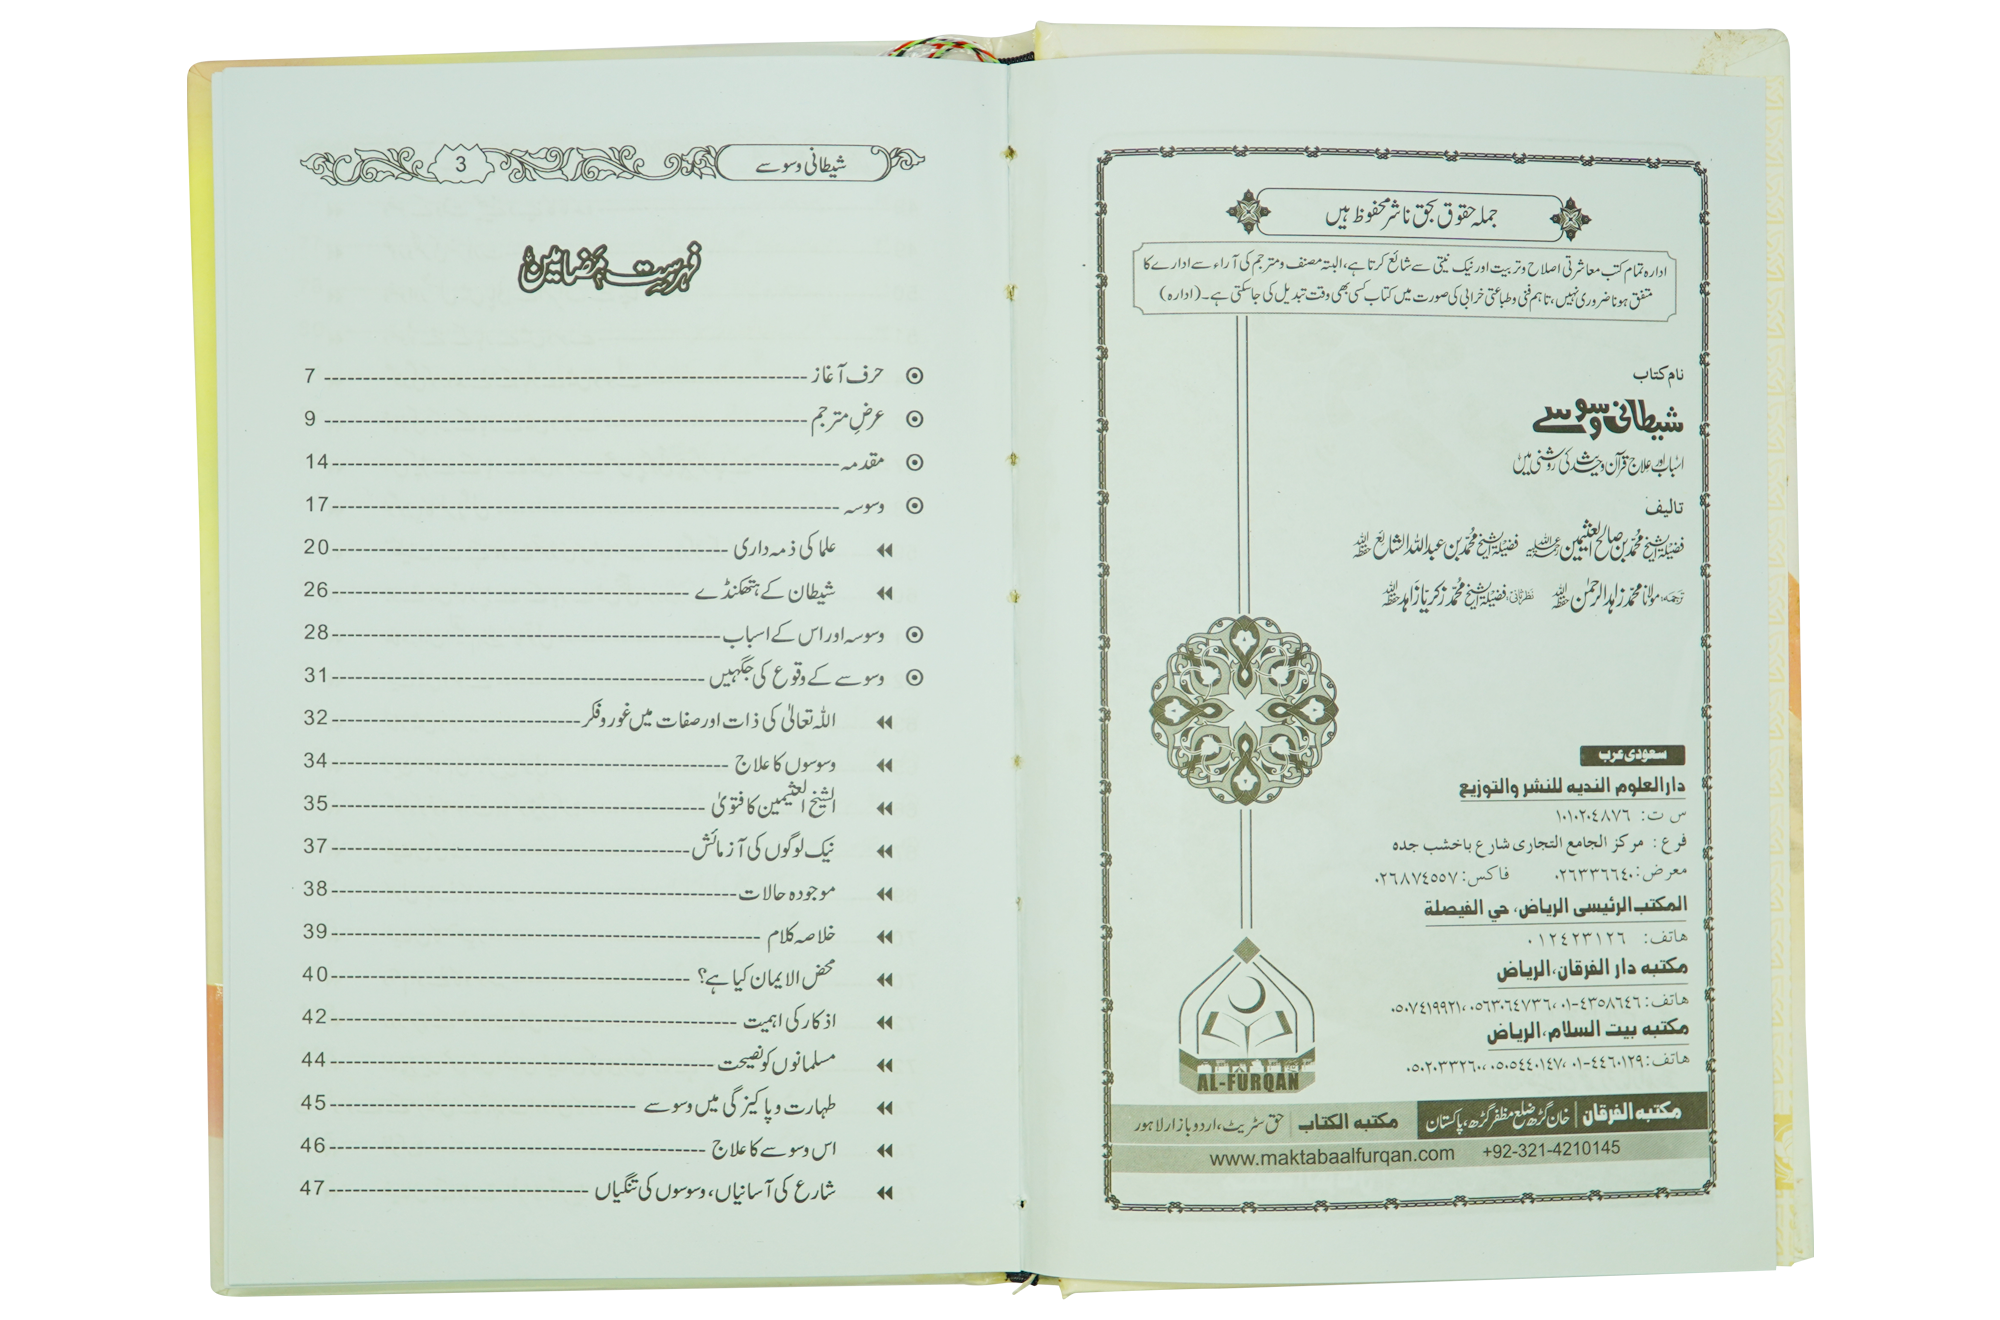 جملہ حقوق بحق ناشر محفوظ ہیں
ادارہ تمام کتب معاشرتی اصلاح و تربیت اور نیک نیتی سے شائع کرتا ہے، البتہ مصنف و مترجم کی آراء سے ادارے کا
متفق ہونا ضروری نہیں، تاہم فنی و طباعتی خرابی کی صورت میں کتاب کسی بھی وقت تبدیل کی جاسکتی ہے۔ (ادارہ)
نام کتاب
شیطانی وسوسے
اسباب اور علاج قرآن و حدیث کی روشنی میں
تالیف
فضیلۃ الشیخ محمد بن صالح العثیمین رحمۃ اللہ علیہ فضیلۃ الشیخ محمد بن عبداللہ الشائع حفظہ اللہ
ترجمہ: مولانا محمد زاہد الرحمٰن حفظہ اللہ نظرثانی: فضیلۃ الشیخ محمد زکریا زاہد حفظہ اللہ
سعودی عرب
دارالعلوم الندیه للنشر والتوزیع
س ت: ١٠١٠٢٠٤٨٧٦
فرع: مرکز الجامع التجاری شارع باخشب جده
معرض: ٠٢٦٣٣٦٦٤٠ فاکس: ٠٢٦٨٧٤٥٥٧
المکتب الرئیسی الریاض، حی الفیصلة
هاتف: ٠١٢٤٢٣١٢٦
مکتبه دار الفرقان، الریاض
هاتف: ٠١-٤٣٥٨٦٤٦ ،٠٥٦٣٠٦٤٧٣٦ ،٠٥٠٧٤١٩٩٢١
مکتبه بیت السلام، الریاض
هاتف: ٠١-٤٤٦٠١٢٩ ،٠٥٠٥٤٤٠١٤٧ ،٠٥٠٢٠٣٣٢٦٠
AL-FURQAN
مکتبه الفرقان | خان گڑھ ضلع مظفر گڑھ، پاکستان مکتبه الکتاب | حق سٹریٹ، اردو بازار لاہور
www.maktabaalfurqan.com +92-321-4210145
شیطانی وسوسے 3
فہرست مضامین
حرف آغاز 7
عرضِ مترجم 9
مقدمہ 14
وسوسہ 17
علما کی ذمہ داری 20
شیطان کے ہتھکنڈے 26
وسوسہ اور اس کے اسباب 28
وسوسے کے وقوع کی جگہیں 31
اللہ تعالیٰ کی ذات اور صفات میں غور و فکر 32
وسوسوں کا علاج 34
الشیخ العثیمین کا فتویٰ 35
نیک لوگوں کی آزمائش 37
موجودہ حالات 38
خلاصہ کلام 39
محض الایمان کیا ہے؟ 40
اذکار کی اہمیت 42
مسلمانوں کو نصیحت 44
طہارت و پاکیزگی میں وسوسے 45
اس وسوسے کا علاج 46
شارع کی آسانیاں، وسوسوں کی تنگیاں 47